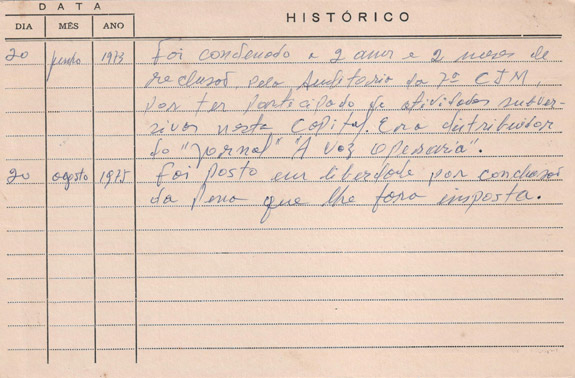 DATA
HISTÓRICO
DIA MÊS ANO
20 junho 1973 Foi condenado a 2 anos e 2 meses de
reclusão, pela Auditoria da 7ª CJM,
por ter participado de atividades subver-
sivas nesta Capital. Era distribuidor
do "jornal" "A Voz Operaria".
20 agosto 1975 Foi posto em liberdade por conclusão
da pena que lhe fora imposta.